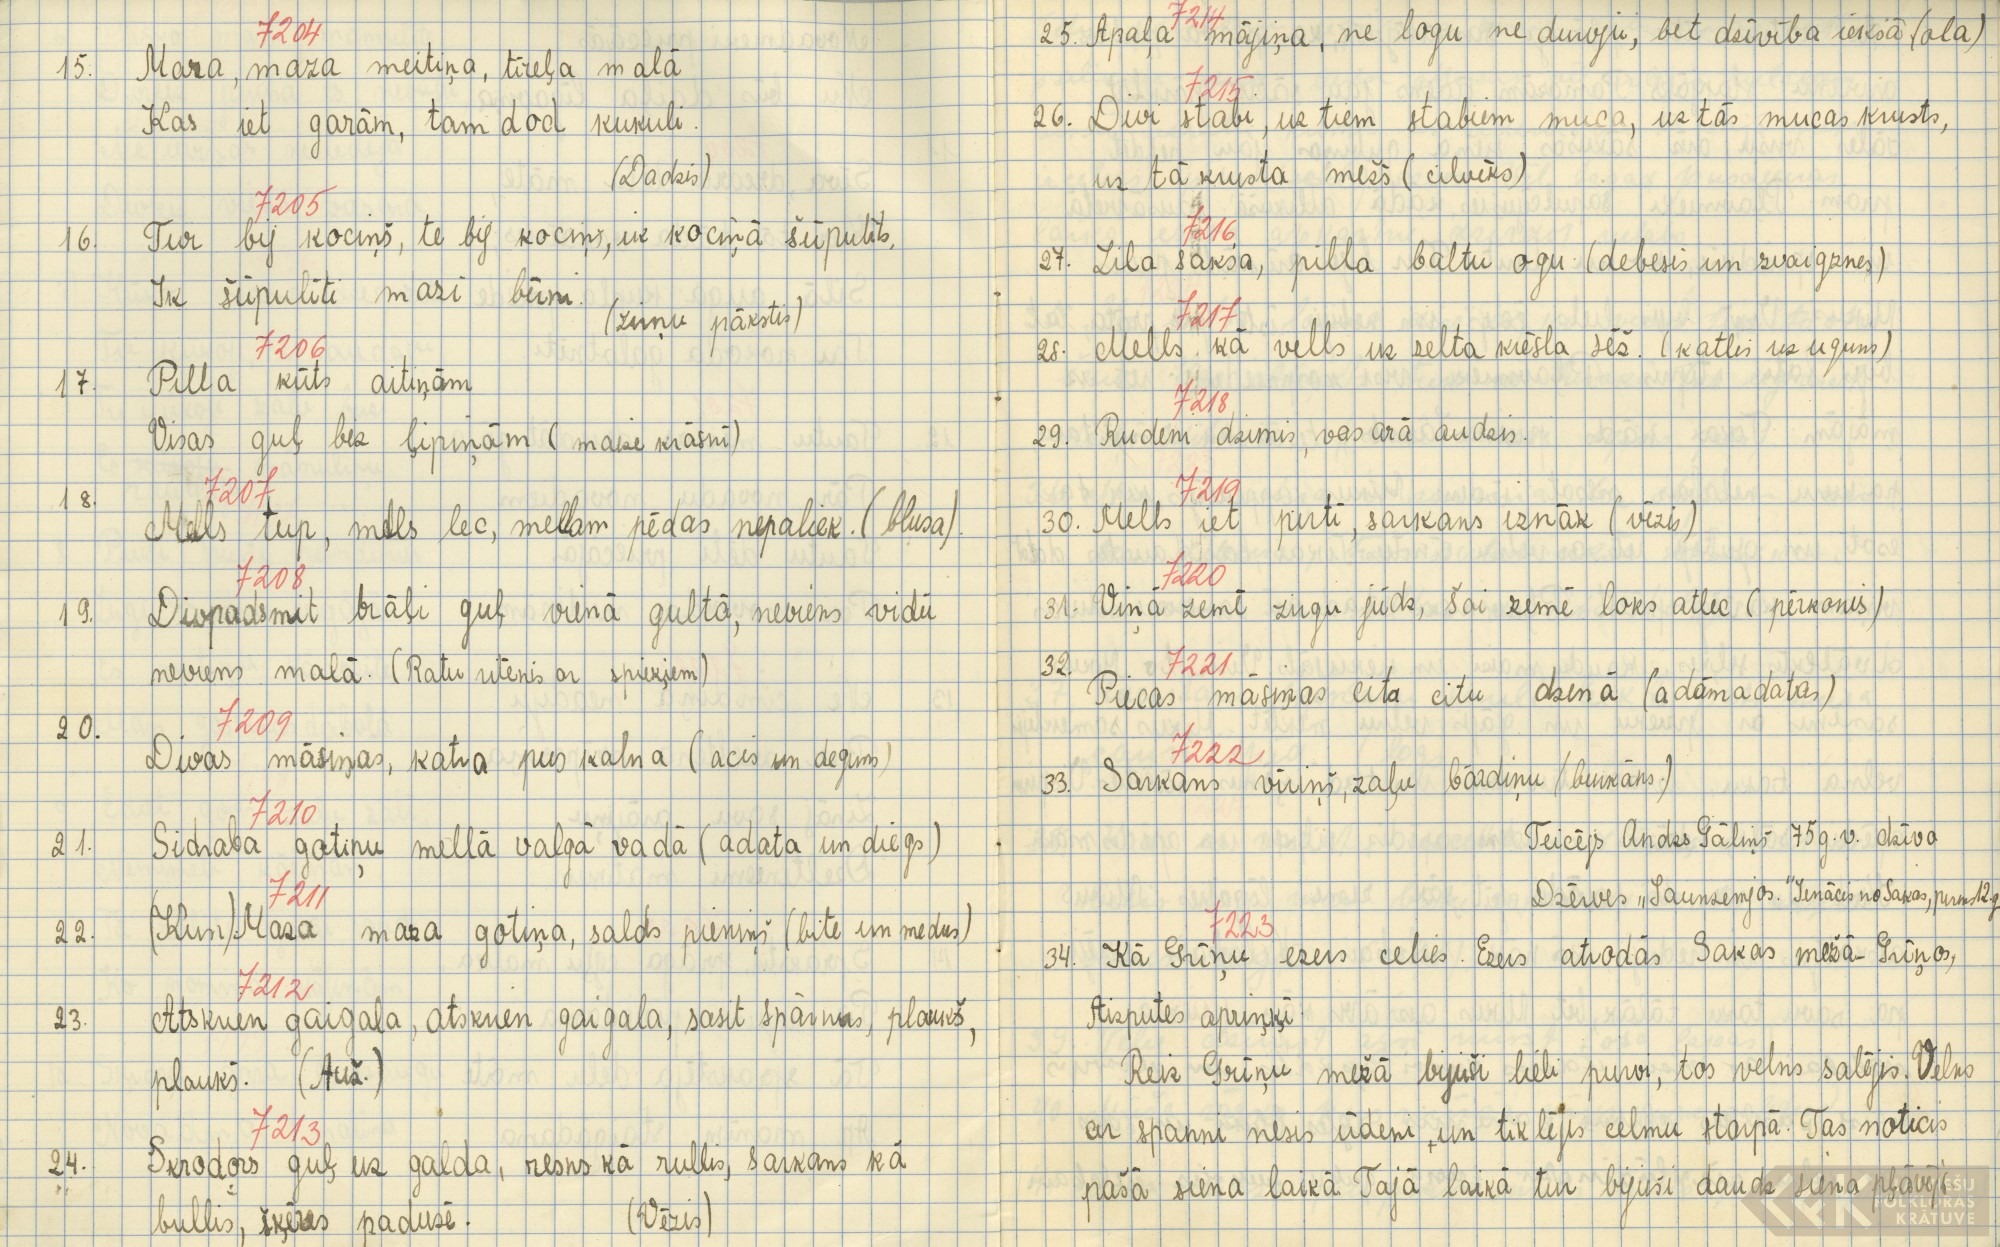 7204
15. Maza, maza meitiņa, tīreļa malā
Kas iet garām, tam dod kukuli.
(Dadzis)
7205
16. Tur bij kociņš, te bij kociņš, ik kociņā šūpulīts,
Ik šūpulīti mazi bērni.
(zirņu pākstis)
7206
17. Pilla kūts aitiņām
Visas guļ bez ļipiņām (maize krāsnī)
7207
18. Mells tup, mells lec, mellam pēdas nepaliek. (blusa).
7208
19. Divpadsmit brāļi guļ vienā gultā, neviens vidū
neviens malā. (Ratu ritenis ar spieķiem)
7209
20. Divas māsiņas, katra pus kalna (acis un deguns)
7210
21. Sidraba gotiņu mellā valgā vadā (adata un diegs)
7211
22. (Kur.) Maza maza gotiņa, salds pieniņš (bite un medus)
7212
23. Atskrien gaigala, atskrien gaigala, sasit spārnus, plaukš,
plaukš. (Auž.)
7213
24. Skrodors guļ uz galda, resns kā rullis, sarkans kā
bullis, šķēres padusē. (Vēzis)
7214
25. Apaļa mājiņa, ne logu ne durvju, bet dzīvība iekšā (ola)
7215
26. Divi stabi, uz tiem stabiem muca, uz tās mucas krusts,
uz tā krusta mežs (cilvēks)
7216
27. Zila sakša, pilla baltu ogu (debesis un zvaigznes)
7217
28. Mells kā vells uz zelta krēsla sēž. (katlis uz uguns)
7218
29. Rudeni dzimis, vasarā audzis.
7219
30. Mells iet pirtī, sarkans iznāk (vēzis)
7220
31. Viņā zemē zirgu jūdz, šai zemē loks atlec (pērkonis)
7221
32. Piecas māsiņas cita citu dzenā (adāmadatas)
7222
33. Sarkans vīriņš, zaļu bārdiņu (burkāns.)
Teicējs Andzs Gāliņš 75 g. v. dzīvo
Dzērves "Jaunzemjos." Ienācis no Sakas, pirms 12 g
7223
34. Kā Grīņu ezers cēlies. Ezers atrodās Sakas mežā - Grīņos,
Aizputes apriņķī.
Reiz Grīņu mežā bijuši lieli purvi, tos velns salējis. Velns
ar spanni nesis ūdeni un tiklējis celmu starpā. Tas noticis
pašā siena laikā. Tajā laikā tur bijuši daudz siena pļāvēji
KRĀTUVE